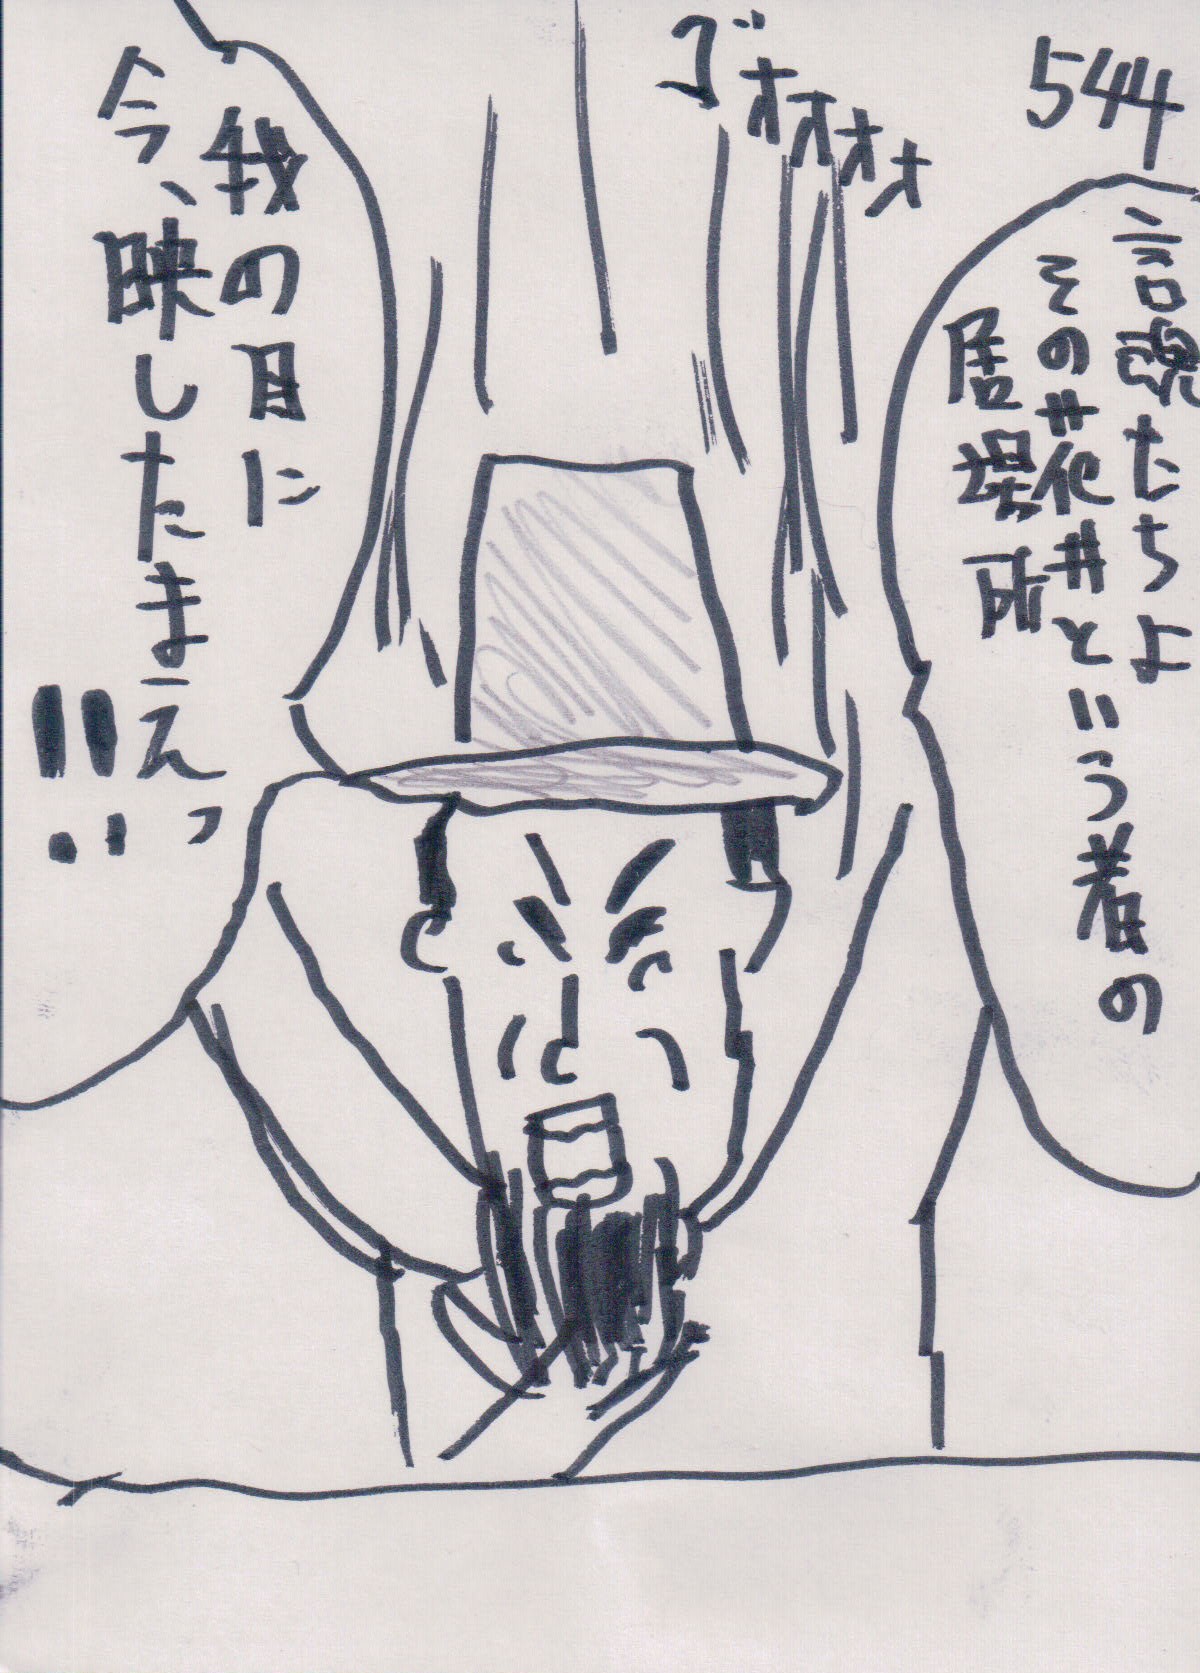 544
ゴオオオオ
言魂たちよ
その#花井#という者の
居場所
我の目に
今、映したまえっ
!!